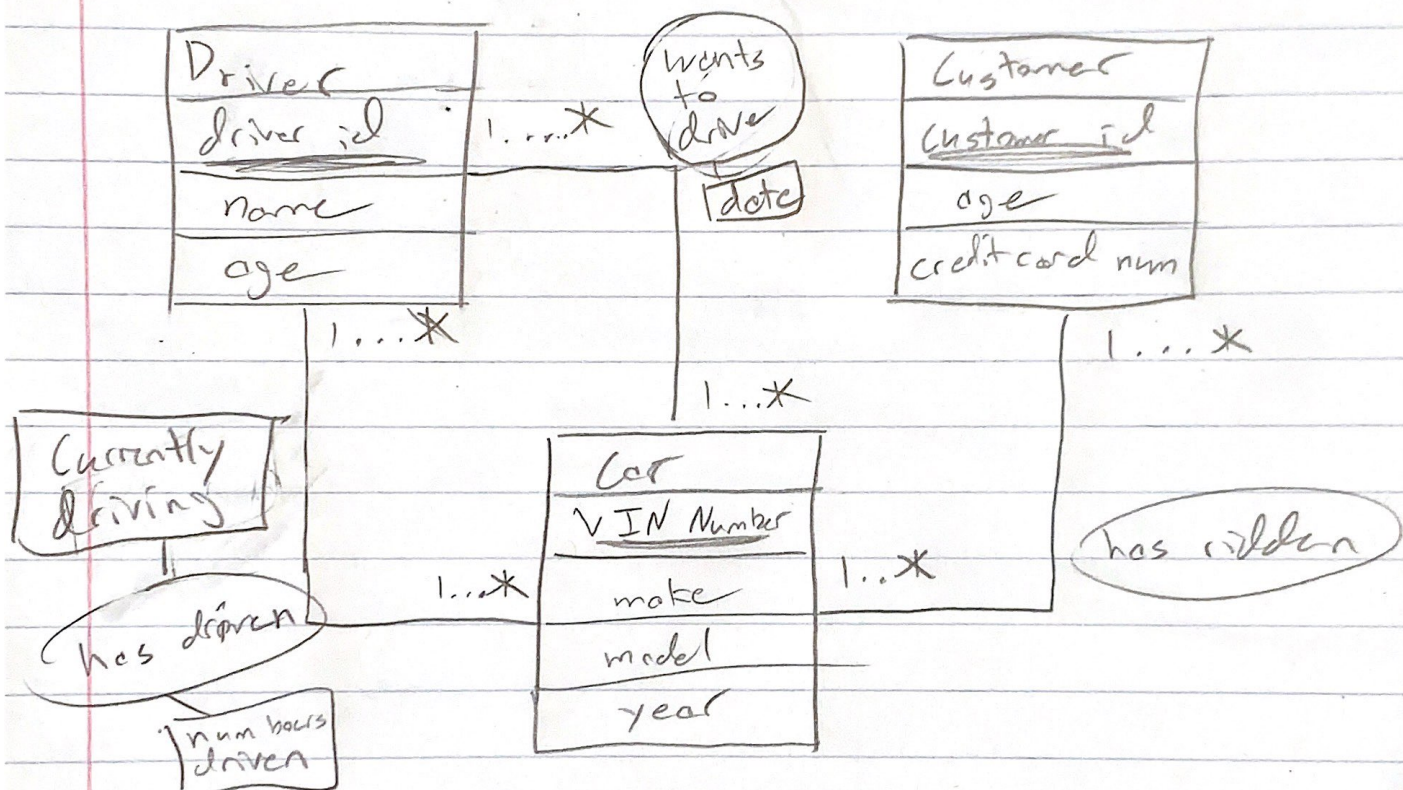 Driver
driver id
name
age
1....*
wants
to
driver
date
Customer
Customer id
age
credit card num
1...*
1...*
1....*
Currently
driving
has driven
num hours
driven
1...*
Car
VIN Number
make
model
year
1..*
has ridden